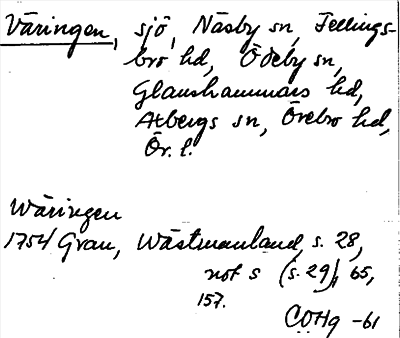 Väringen, sjö, Näsby sn, Fellings-
bro hd, Ödeby sn,
Glanshammars hd,
Axbergs sn, Örebro hd,
Ör. l.
Wäringen
1754 Grau, Wästmanland, s. 28,
not s (s. 29), 65,
157.
COHg -61